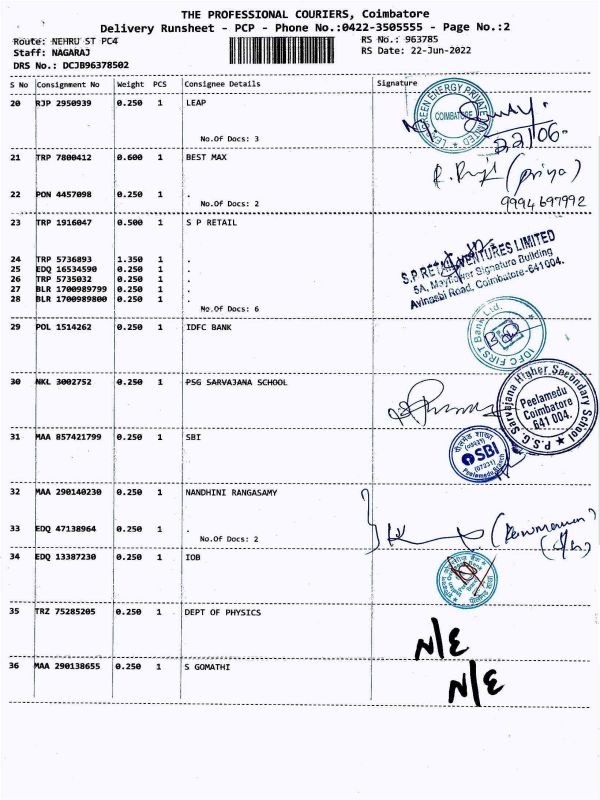 THE PROFESSIONAL COURIERS, Coimbatore
Delivery Runsheet - PCP - Phone No.:0422-3505555 - Page No.:2
Route: NEHRU ST PC4 RS No.: 963785
Staff: NAGARAJ RS Date: 22-Jun-2022
DRS No.: DCJB96378502
S No Consignment No Weight PCS Consignee Details Signature
20 RJP 2950939 0.250 1 LEAP
No.Of Docs: 3
COIMBATORE
22/06
21 TRP 7800412 0.600 1 BEST MAX
(priya)
22 PON 4457098 0.250 1 .
No.Of Docs: 2
9994697992
23 TRP 1916047 0.500 1 S P RETAIL
S.P RETAIL VENTURES LIMITED
5A, Mayflower Signature Building
Avinashi Road, Coimbatore-641004.
24 TRP 5736893 1.350 1 .
25 EDQ 16534590 0.250 1 .
26 TRP 5735032 0.250 1 .
27 BLR 1700989799 0.250 1 .
28 BLR 1700989800 0.250 1 .
No.Of Docs: 6
29 POL 1514262 0.250 1 IDFC BANK
IDFC FIRST Bank Ltd.
30 NKL 3002752 0.250 1 PSG SARVAJANA SCHOOL
P.S.G. Sarvajana Higher Secondary School
Peelamedu
Coimbatore
641 004.
31 MAA 857421799 0.250 1 SBI
SBI
(07231)
Peelamedu Branch
32 MAA 290140230 0.250 1 NANDHINI RANGASAMY
33 EDQ 47138964 0.250 1 .
No.Of Docs: 2
34 EDQ 13387230 0.250 1 IOB
35 TRZ 75285205 0.250 1 DEPT OF PHYSICS
N/E
36 MAA 290138655 0.250 1 S GOMATHI
N/E